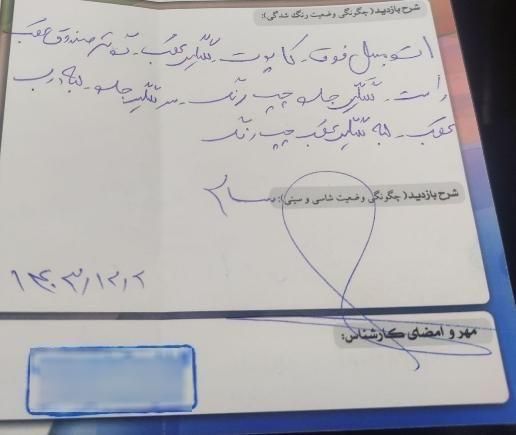 شرح بازدید( چگونگی وضعیت رنگ شدگی):
اتومبیل فوق - کاپوت - گلگیر عقب - ستون صندوق عقب
راست - گلگیر جلو چپ رنگ - سر گلگیر جلو - لبه درب
عقب - لبه گلگیر عقب چپ رنگ
شرح بازدید( چگونگی وضعیت شاسی و سینی): سالم
۱۴۰۳/۱۲/۲
مهر و امضای کارشناس: